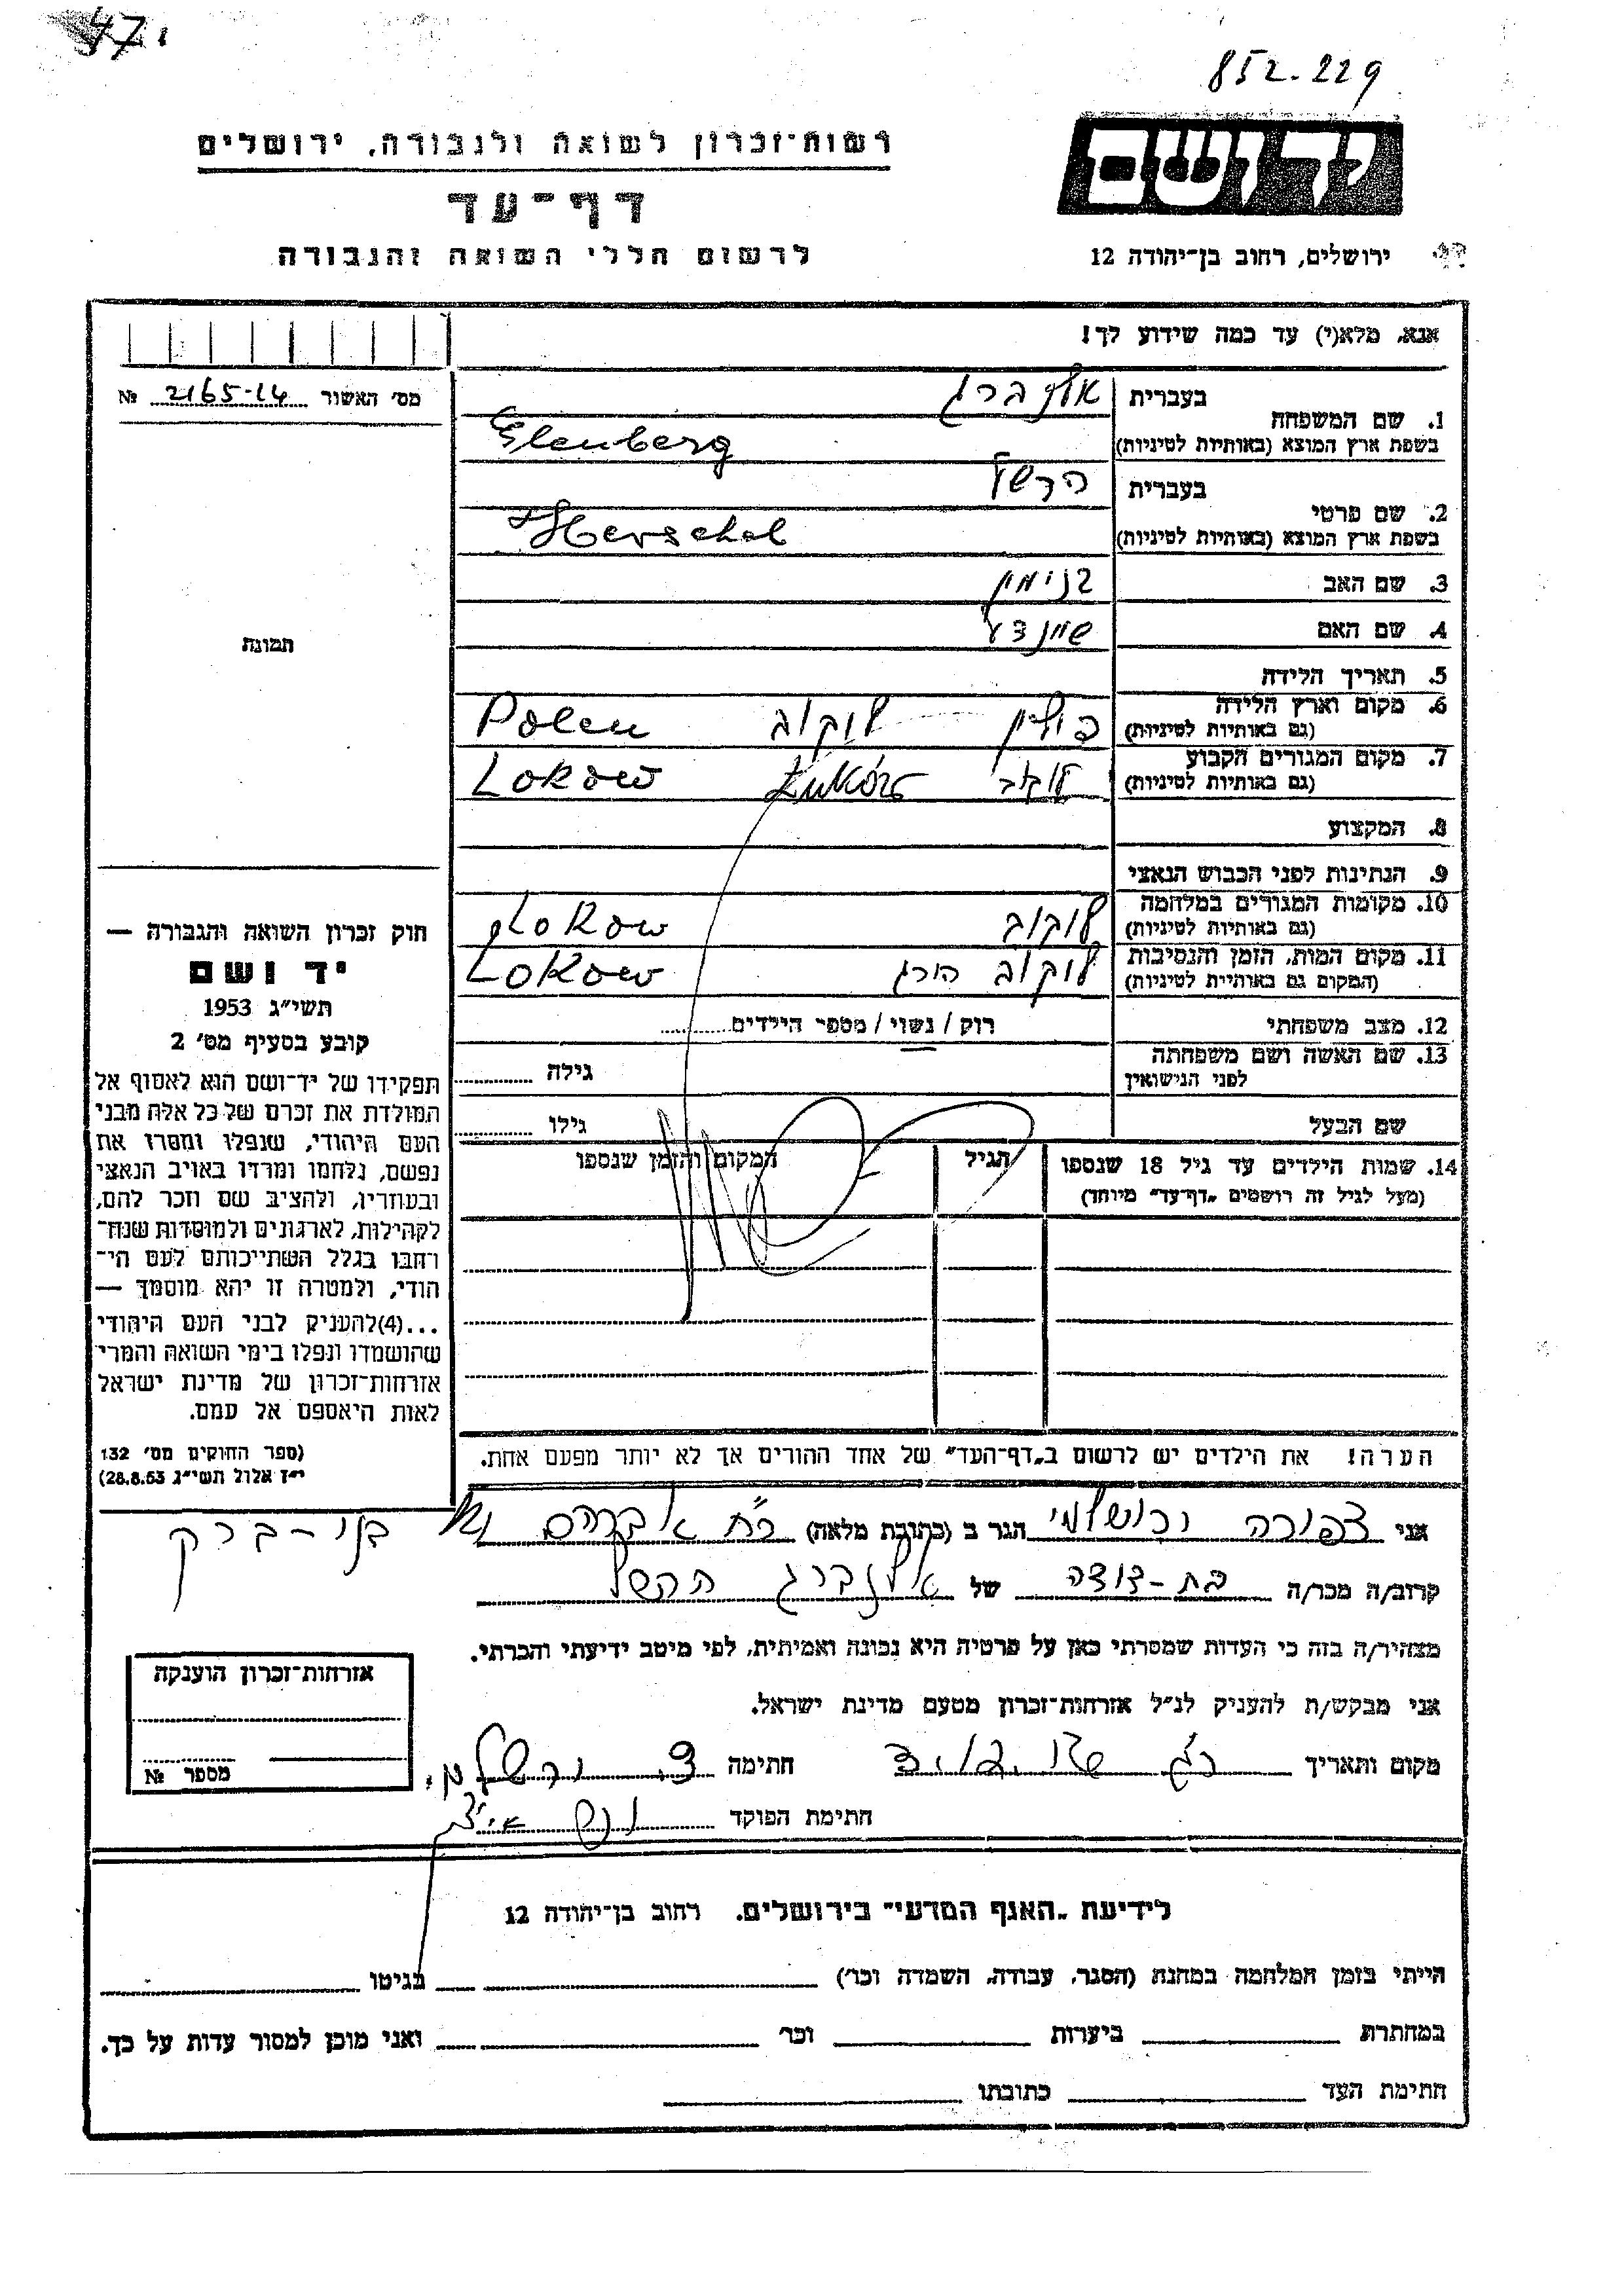 47
852-229
רשות־זכרון לשואה ולגבורה, ירושלים
דף־עד
לרשום חללי השואה והגבורה
יד ושם
ירושלים, רחוב בן־יהודה 12
אנא, מלא(י) עד כמה שידוע לך!
מס׳ האשור 2165-14 №
תמונה
1. שם המשפחה בעברית אלנברג
בשפת ארץ המוצא (באותיות לטיניות) Elenberg
2. שם פרטי בעברית הרשל
בשפת ארץ המוצא (באותיות לטיניות) Herschel
3. שם האב בנימין
4. שם האם
5. תאריך הלידה
6. מקום וארץ הלידה (גם באותיות לטיניות) פולין לוקוב Polen
7. מקום המגורים הקבוע (גם באותיות לטיניות) לוקוב Łuków Lokow
8. המקצוע
9. הנתינות לפני הכבוש הנאצי
10. מקומות המגורים במלחמה (גם באותיות לטיניות) לוקוב Lokow
11. מקום המות, הזמן והנסיבות (המקום גם באותיית לטיניות) לוקוב הורג Lokow
12. מצב משפחתי רוק / נשוי / מספר הילדים
13. שם האשה ושם משפחתה לפני הנישואין גילה
שם הבעל גילו
14. שמות הילדים עד גיל 18 שנספו הגיל המקום והזמן שנספו
(מעל לגיל זה רושמים „דף־עד״ מיוחד)
הערה! את הילדים יש לרשום ב„דף־העד״ של אחד ההורים אך לא יותר מפעם אחת.
חוק זכרון השואה והגבורה —
יד ושם
תשי״ג 1953
קובע בסעיף מס׳ 2
תפקידו של יד־ושם הוא לאסוף אל
המולדת את זכרם של כל אלה מבני
העם היהודי, שנפלו ומסרו את
נפשם, נלחמו ומרדו באויב הנאצי
ובעוזריו, ולהציב שם וזכר להם,
לקהילות, לארגונים ולמוסדות שנח־
רחבו בגלל השתייכותם לעם הי־
הודי, ולמטרה זו יהא מוסמך —
...(4)להעניק לבני העם היהודי
שהושמדו ונפלו בימי השואה והמרי
אזרחות־זכרון של מדינת ישראל
לאות היאספם אל עמם.
(ספר החוקים מס׳ 132
י״ז אלול תשי״ג 28.8.53)
אני צפורה ירושלמי הגר ב (כתובת מלאה) רח׳ אברהם בני-ברק
קרוב/ה מכר/ה בת-דודה של אלנברג הרשל
מצהיר/ה בזה כי העדות שמסרתי כאן על פרטיה היא נכונה ואמיתית, לפי מיטב ידיעתי והכרתי.
אני מבקש/ת להעניק לנ״ל אזרחות־זכרון מטעם מדינת ישראל.
מקום ותאריך חתימה צ. ירושלמי
חתימת הפוקד
אזרחות־זכרון הוענקה
מספר №
לידיעת „האגף המדעי״ בירושלים. רחוב בן־יהודה 12
הייתי בזמן המלחמה במחנה (הסגר, עבודה, השמדה וכר׳) בגיטו
במחתרת ביערות וכר׳ ואני מוכן למסור עדות על כך.
חתימת העד כתובתו